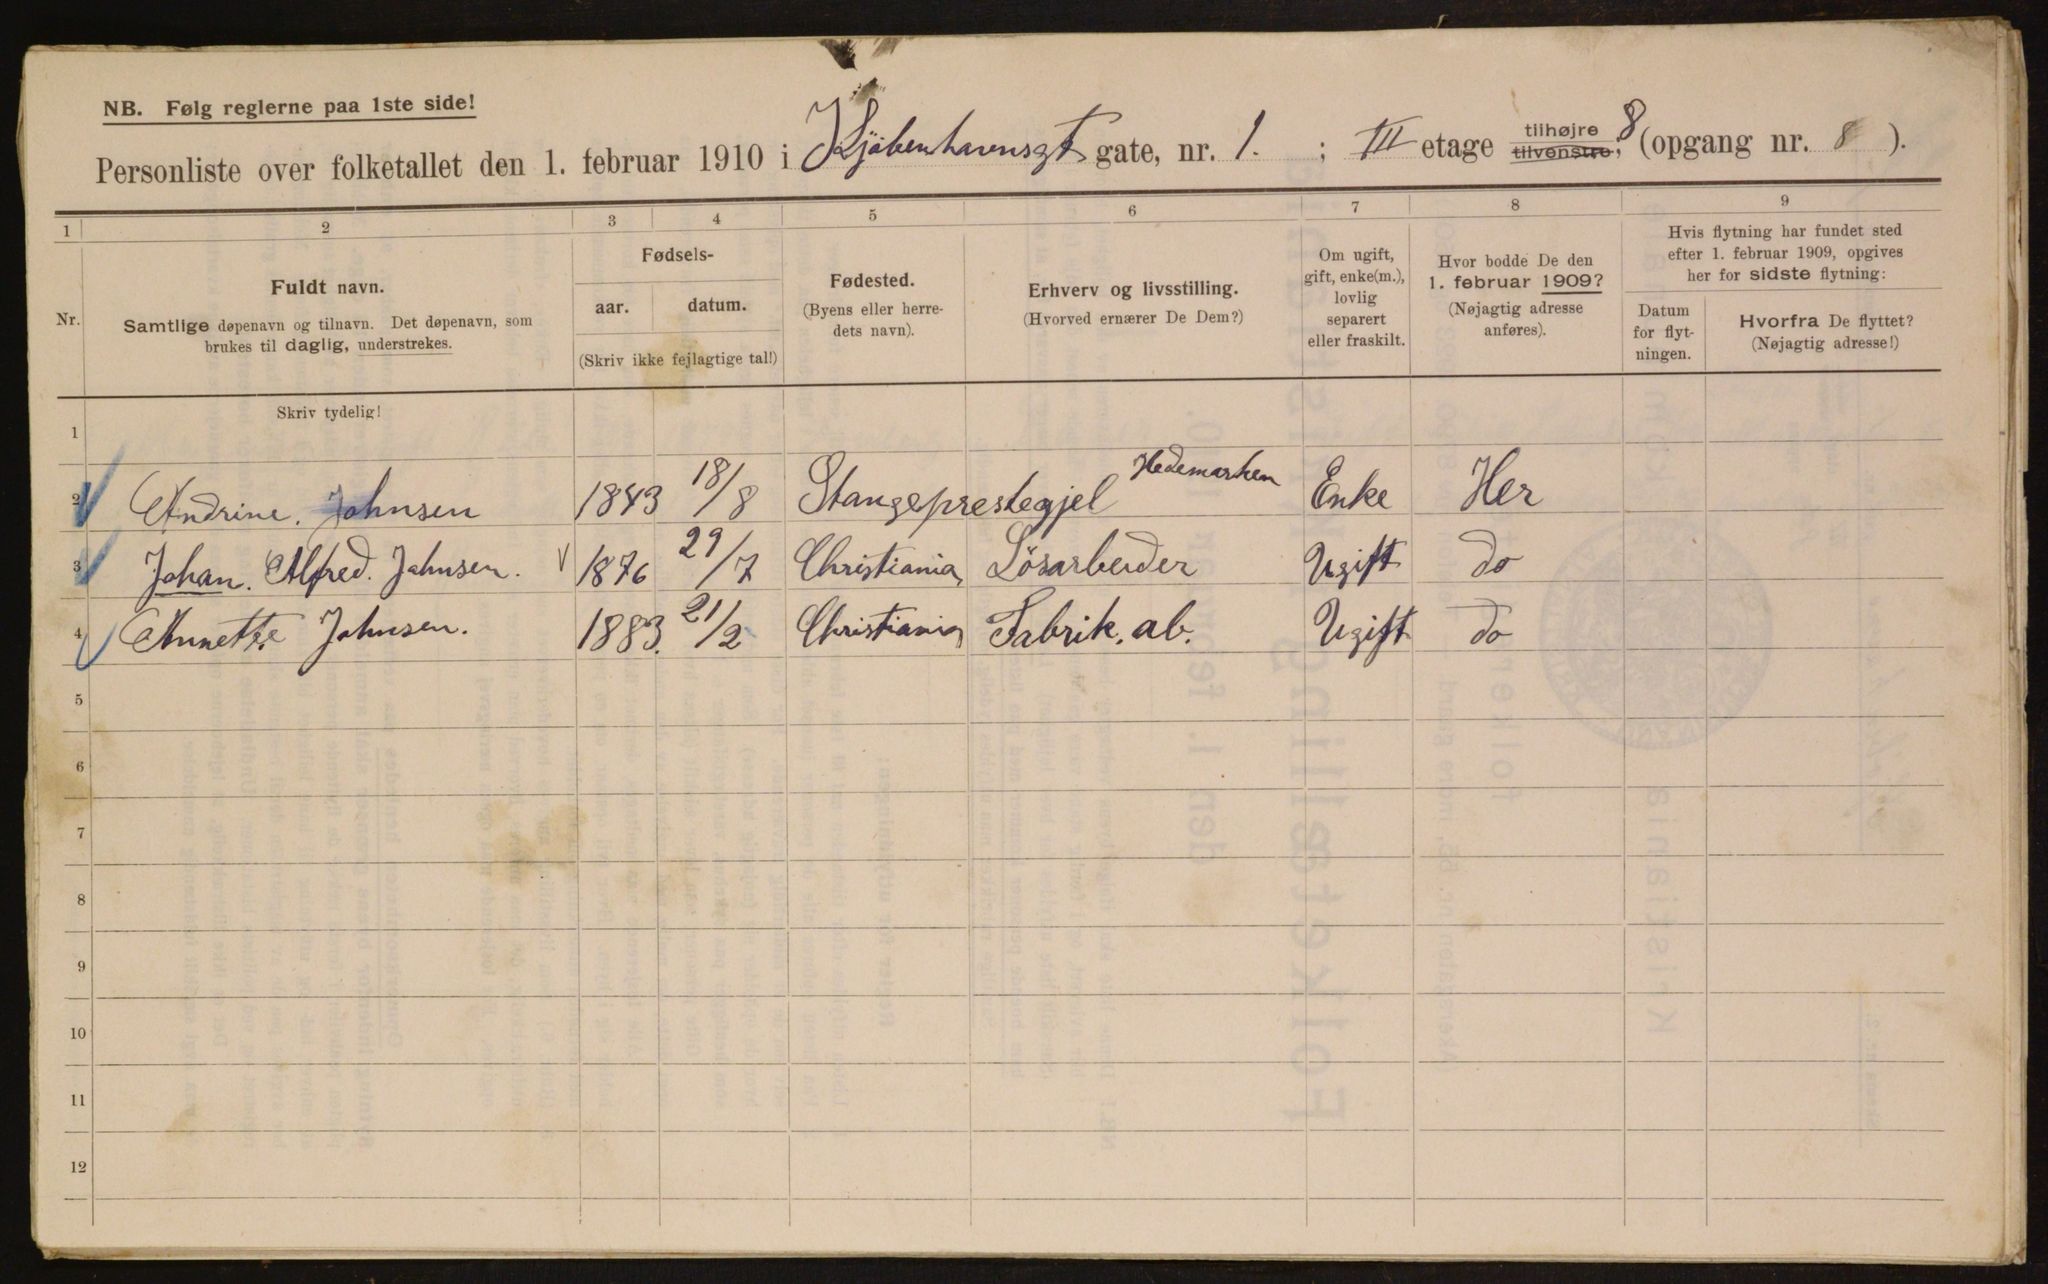 NB. Følg reglerne paa 1ste side!
Personliste over folketallet den 1. februar 1910 i Kjøbenhavnsgt gate, nr. 1. ; III etage tilhøjre tilvenstre; 8 (opgang nr. 8 ).
1 2 3 4 5 6 7 8 9
Nr.
Fuldt navn.
Samtlige døpenavn og tilnavn. Det døpenavn, som
brukes til daglig, understrekes.
Fødsels-
aar. datum.
(Skriv ikke fejlagtige tal!)
Fødested.
(Byens eller herre-
dets navn).
Erhverv og livsstilling.
(Hvorved ernærer De Dem?)
Om ugift,
gift, enke(m.),
lovlig
separert
eller fraskilt.
Hvor bodde De den
1. februar 1909?
(Nøjagtig adresse
anføres).
Hvis flytning har fundet sted
efter 1. februar 1909, opgives
her for sidste flytning:
Datum
for flyt-
ningen.
Hvorfra De flyttet?
(Nøjagtig adresse!)
Skriv tydelig!
1
2 Andrine. Johnsen 1843 18/8 Stangeprestegjel Hedemarken Enke Her
3 Johan. Alfred. Johnsen. V 1876 29/7 Christiania, Lösarbeider Ugift do
4 Annette Johnsen. 1883. 21/2 Christiania, Fabrik. ab. Ugift do
5
6
7
8
9
10
11
12